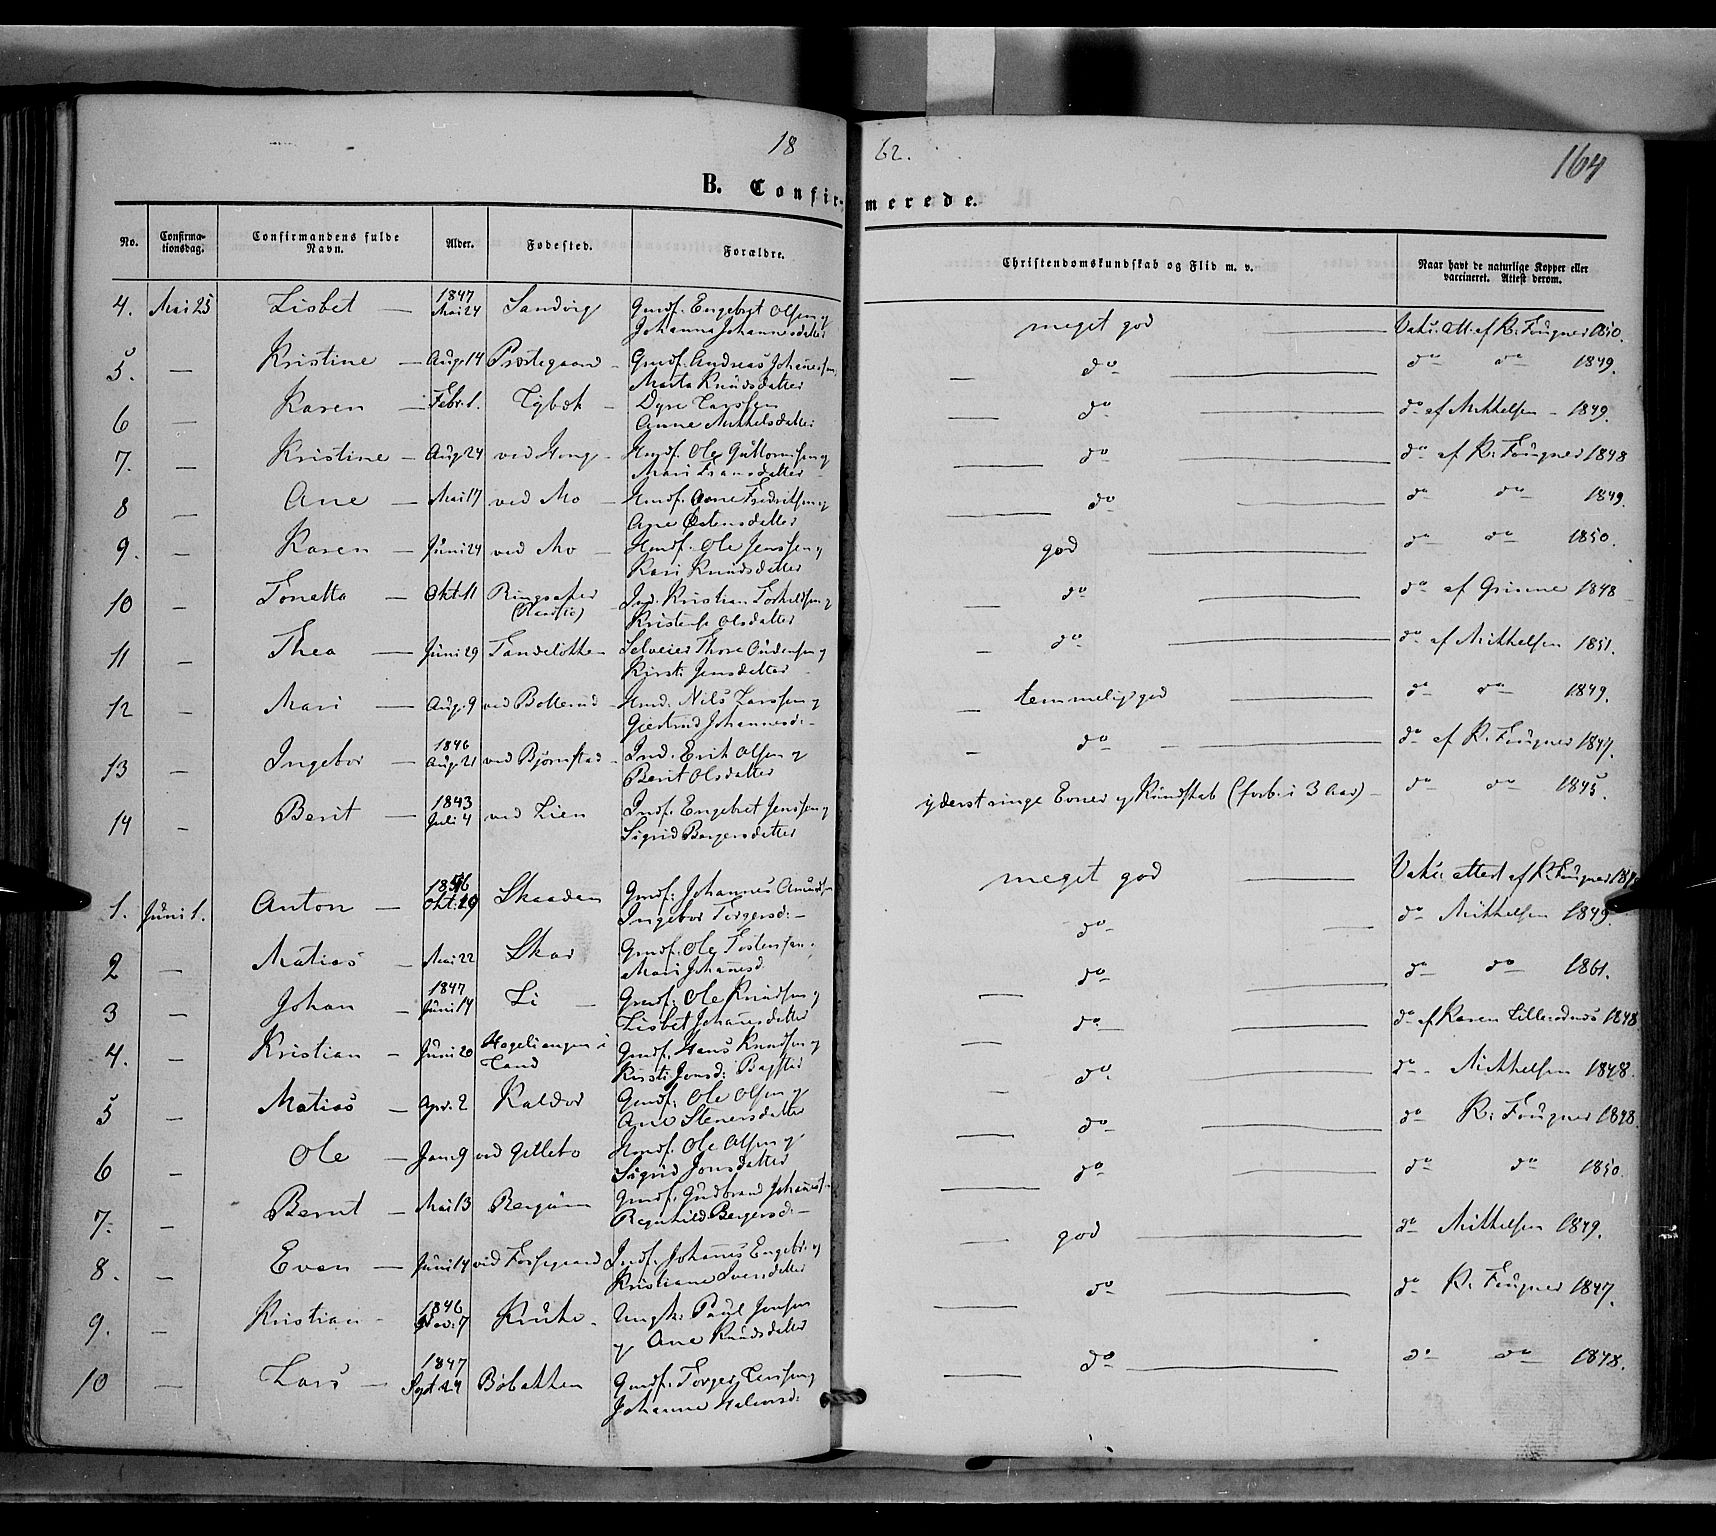 18 62.
164
B. Confir- merede.
No. Confirma-tionsdag. Confirmandens fulde Navn. Alder. Fødested. Forældre. Christendomskundskab og Flid m. v. Naar havt de naturlige Kopper eller vaccineret. Attest derom.
4. Mai 25 Lisbet — 1847 Mai 24 Sandvig Gmdf. Engebret Olsen og Johanna Johannesdatter meget god Vaks. att. af R. Fougner 1850.
5. — Kristine — Aug. 14 Præstegaard Gmdf. Andreas Johannessen, Marta Knudsdatter — do do do 1849.
6 — Karen — Febr. 1. Lybæk — Dyre Larssen Anne Mikkelsdatter — do do af Mikkelsen - 1849.
7. — Kristine — Aug 24 ved Hong - Hmdf. Ole Guttormsen og Mari Fransdatter — do do af R. Fougner 1848
8 — Ane — Mai 17 ved Mo — Hmdf. Arne Fredriksen og Ane Østensdatter — do do do 1849.
9. — Karen — Juni 24 ved Mo — Hmdf. Ole Jenssen og Kari Knudsdatter god do do 1850.
10 — Tonetta — Okt. 11 Ringsaker Ind. Kristian Olsdatter — do do af Grimme 1848
11 — Thea — Juni 29 Selveier Thore og Kirsti Jensdatter - do do af Mikkelsen 1851.
12 — Mari — Aug. 9 ved Botterud Hmd. Nils Larssen og Gjertrud Johannesd: — temmelig god do do 1849.
13 — Ingebor — 1846 Aug. 21 ved Bjørnstad Ind. Erik Olsen og Berit Olsdatter - do do af R. Fougner 1847.
14 — Berit — 1843 Juli 4 ved Lien Indf. Engebret Jenssen og Sigrid Bergersdatter yderst ringe Evner og Kundskab (forb. i 3 Aar) — do do 1845.
1. Juni 1. Anton — 1846 Okt. 29 Skaaden Gmdf. Johannes Amundsen Ingebor Torgersd: — meget god Vaks. attest af R. Fougner
2 — Matias — Mai 22 Skar Gmdf. Ole Tostensen. Mari Johannesd. do do Mikkelsen 1849.
3 — Johan 1847 Juni 14 Li — Gmdf. Ole Knudsen og Lisbet Johannesdatter — do do do 1861.
4. — Kristian — Juni 20 i Land Gmdf. Hans Knudsen og Kirsti Jonsd: — do do af Karen 1848.
5 — Matias — Apr. 2 Kaldor Gmdf. Ole Olsen og Ane Stenersdatter - do do - Mikkelsen 1848.
6 — Ole — Jan. 9 ved Gillebo Hmdf. Ole Olsen og Sigrid Jonsdatter — do do R. Fougner 1848.
7. — Bernt — Mai 13 Bergum Gmdf. Gudbrand Johannes Regnhild Bergersd: — — do do do 1850.
8. — Even — Juni 14 ved Forsegaard Indf. Johannes Engebr. og Kristiane Svensdatter — god do Mikkelsen 1849.
9. — Kristian - 1846 Nov. 7 Kruke - Ungk. Paul Jensen og Ane Knudsdatter — do do R. Fougner 1847.
10 — Lars — 1847 Sept. 24 Böbakken Gmdf. Torger Larssen og Johanne Halvorsd: — do do do 1848.